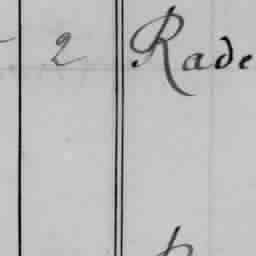 2 Rade